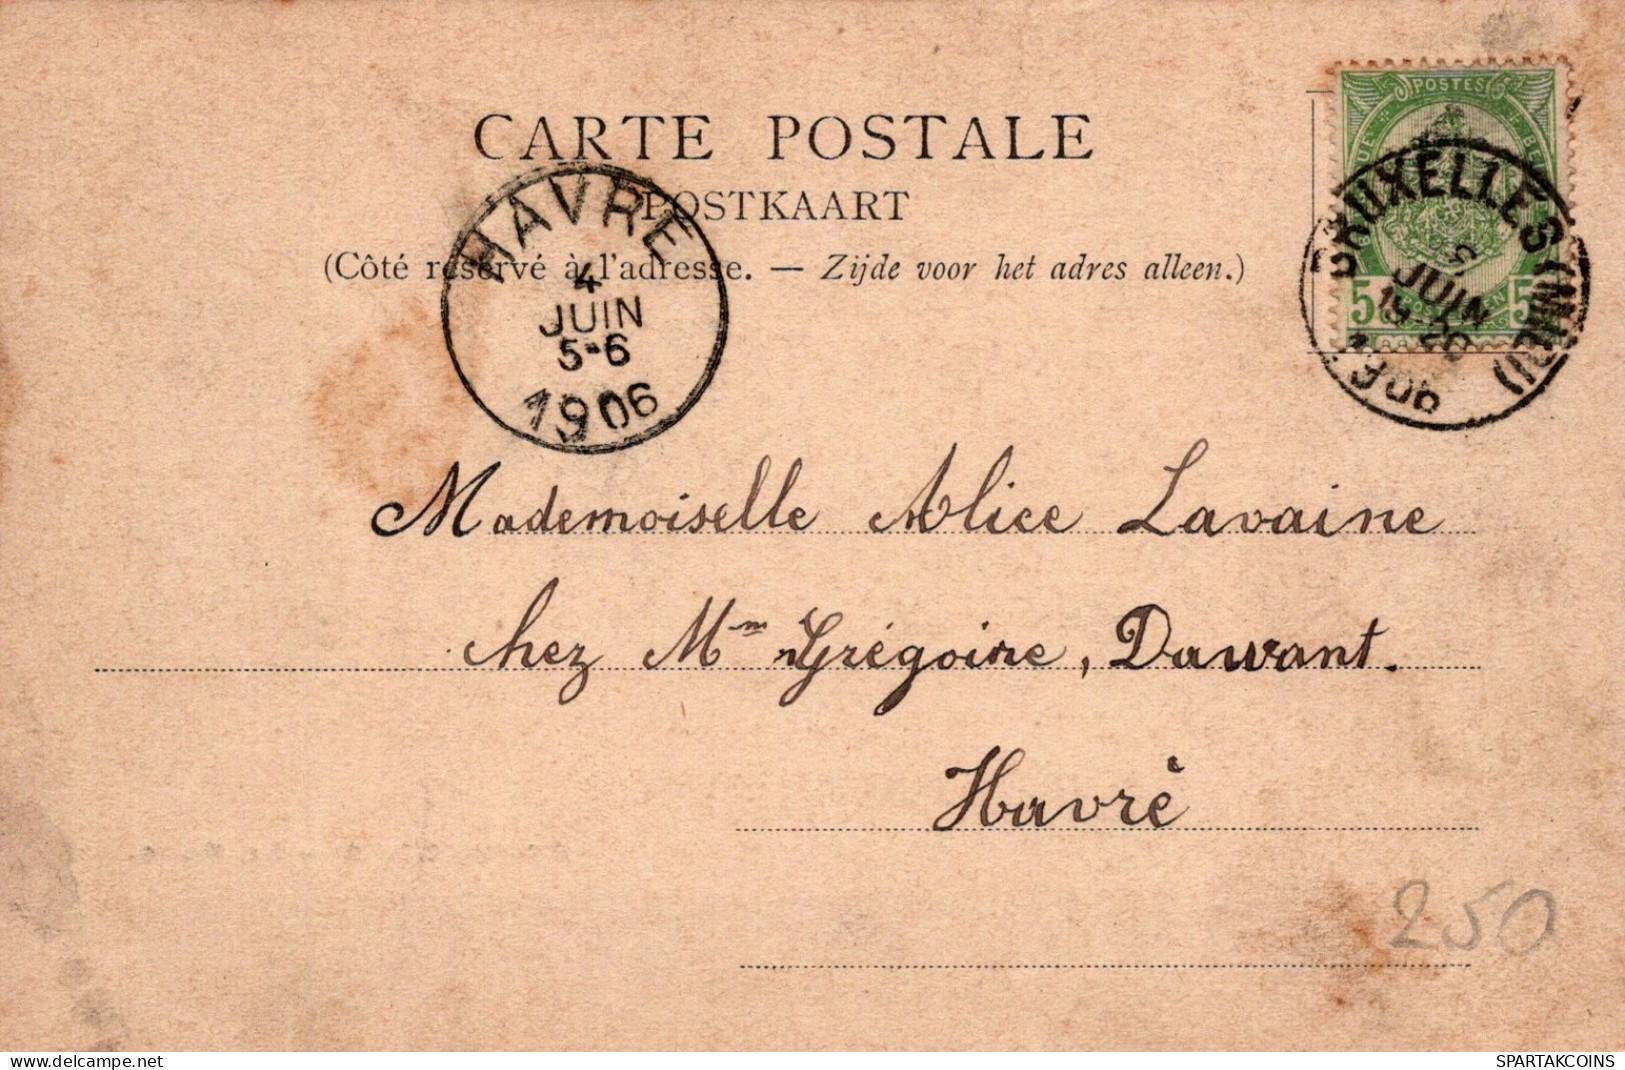 CARTE POSTALE
POSTKAART
(Côté réservé à l'adresse. — Zijde voor het adres alleen.)
HAVRE
4
JUIN
5-6
1906
POSTES
5 5
BRUXELLES (MIDI)
JUIN
1906
Mademoiselle Alice Lavaine
chez Mm Grégoire, Dawant.
Havré
250
delcampe.net
SPARTAKCOINS